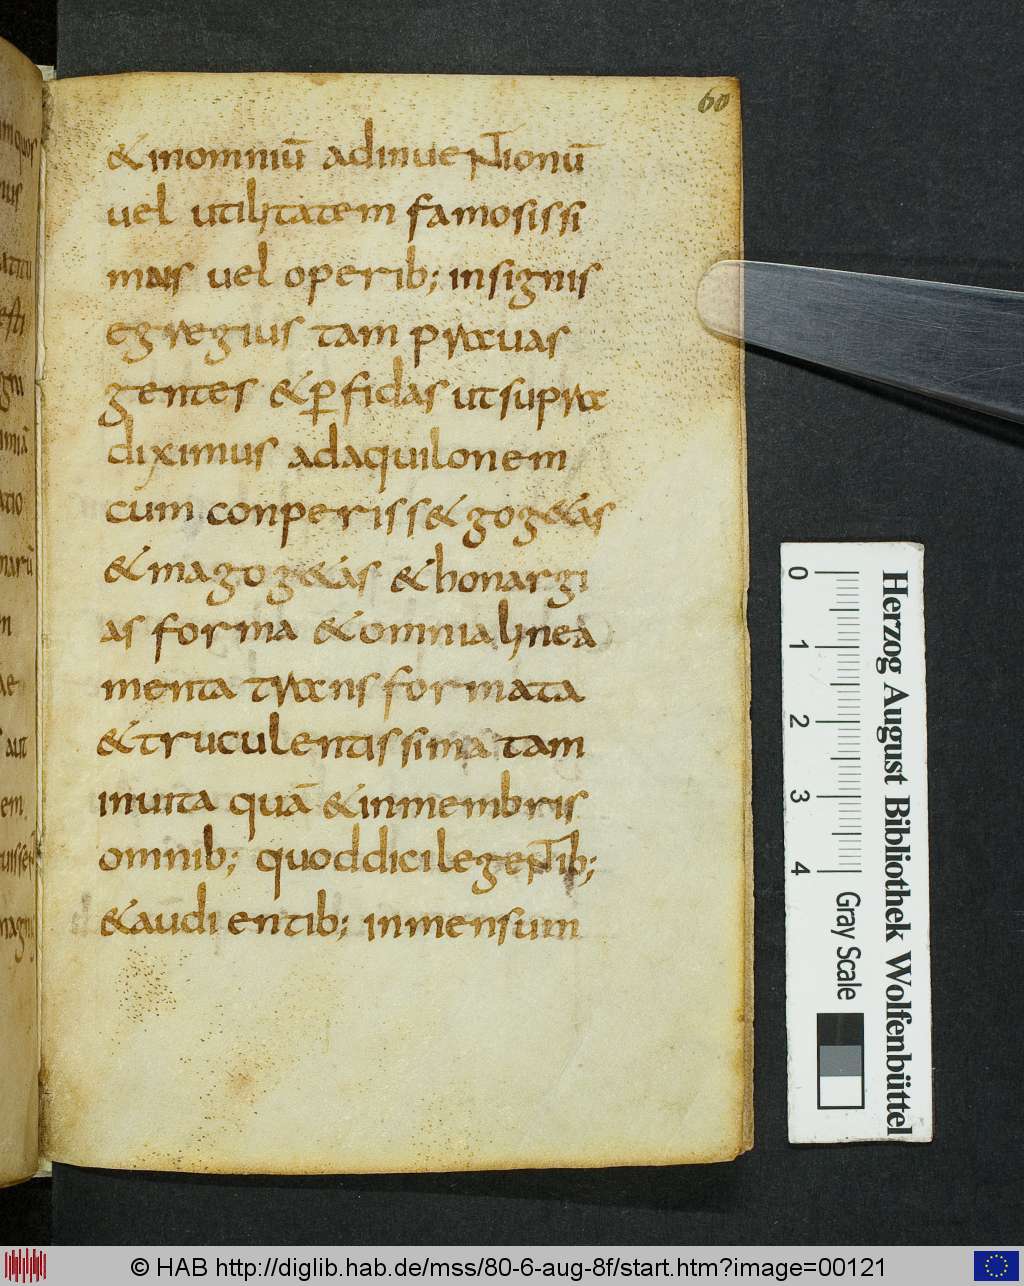 60
& inomniū adinuentionū
uel utilitatem famosissi
mais uel operib; insignis
egregius tam prauas
gentes & p̱fidas utsupra
diximus adaquilonem
cum conperiss& gogetas
& magogetas & honargi
as forma & omnialinea
menta transformata
& truculentissima tam
inuita quā & inmembris
omnib; quoddicilegentib;
& audientib; inmensum
0 1 2 3 4
Gray Scale
Herzog August Bibliothek Wolfenbüttel
© HAB http://diglib.hab.de/mss/80-6-aug-8f/start.htm?image=00121